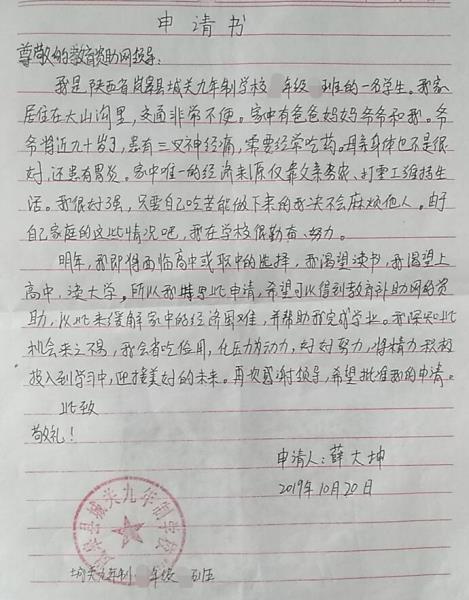 申请书
尊敬的教育资助网领导:
我是陕西省岚皋县城关九年制学校 年级 班的一名学生。我家
居住在大山沟里，交通非常不便。家中有爸爸妈妈爷爷和我。爷
爷将近九十岁了，患有三叉神经痛，需要经常吃药。母亲身体也不是很
好，还患有胃炎。家中唯一的经济来源仅靠父亲务农、打零工维持生
活。我很好强，只要自己吃苦能做下来的我决不会麻烦他人。由于
自己家庭的这些情况吧，我在学校很勤奋、努力。
明年，我即将面临高中或职中的选择，我渴望读书，我渴望上
高中，读大学。所以我特思此申请，希望可以得到教育补助网的资
助，从此来缓解家中的经济困难，并帮助我完成学业。我深知此
机会来之不易，我会省吃俭用，化压力为动力，好好努力，将精力积极
投入到学习中，迎接美好的未来。再次感谢领导，希望批准我的申请。
此致
敬礼！
申请人：薛大坤
2019年10月20日
岚皋县城关九年制学校
城关九年制 年级 班